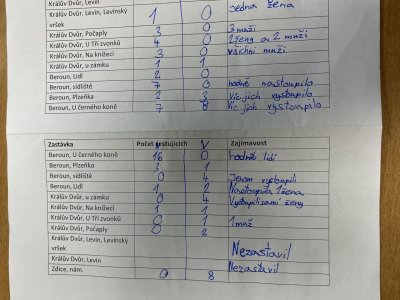 Králův Dvůr, Levín
Králův Dvůr, Levín, Levínský vršek 1 0 Jedna žena
Králův Dvůr, Počaply 3 0 3 muži
Králův Dvůr, U Tří zvonků 4 0 2 ženy a 2 muži
Králův Dvůr, Na knížecí 3 0 všichni muži
Králův Dvůr, u zámku 1 1
Beroun, Lidl 2 0
Beroun, sídliště 7 0 hodně nastoupilo
Beroun, Plzeňka 2 3 Víc jich vystoupilo
Beroun, U černého koně 7 8 Víc jich vystoupilo
Zastávka Počet cestujících V Zajímavost
Beroun, U černého koně 16 0 hodně lidí
Beroun, Plzeňka 3 1
Beroun, sídliště 0 4 Jenom vystoupili
Beroun, Lidl 1 2 Nastoupila 1 žena
Králův Dvůr, u zámku 0 4 ženy
Králův Dvůr, Na knížecí 1 1
Králův Dvůr, U Tří zvonků 0 1 1 muž
Králův Dvůr, Počaply 0 2
Králův Dvůr, Levín, Levínský vršek Nezastavil
Králův Dvůr, Levín Nezastavil
Zdice, nám. 0 8